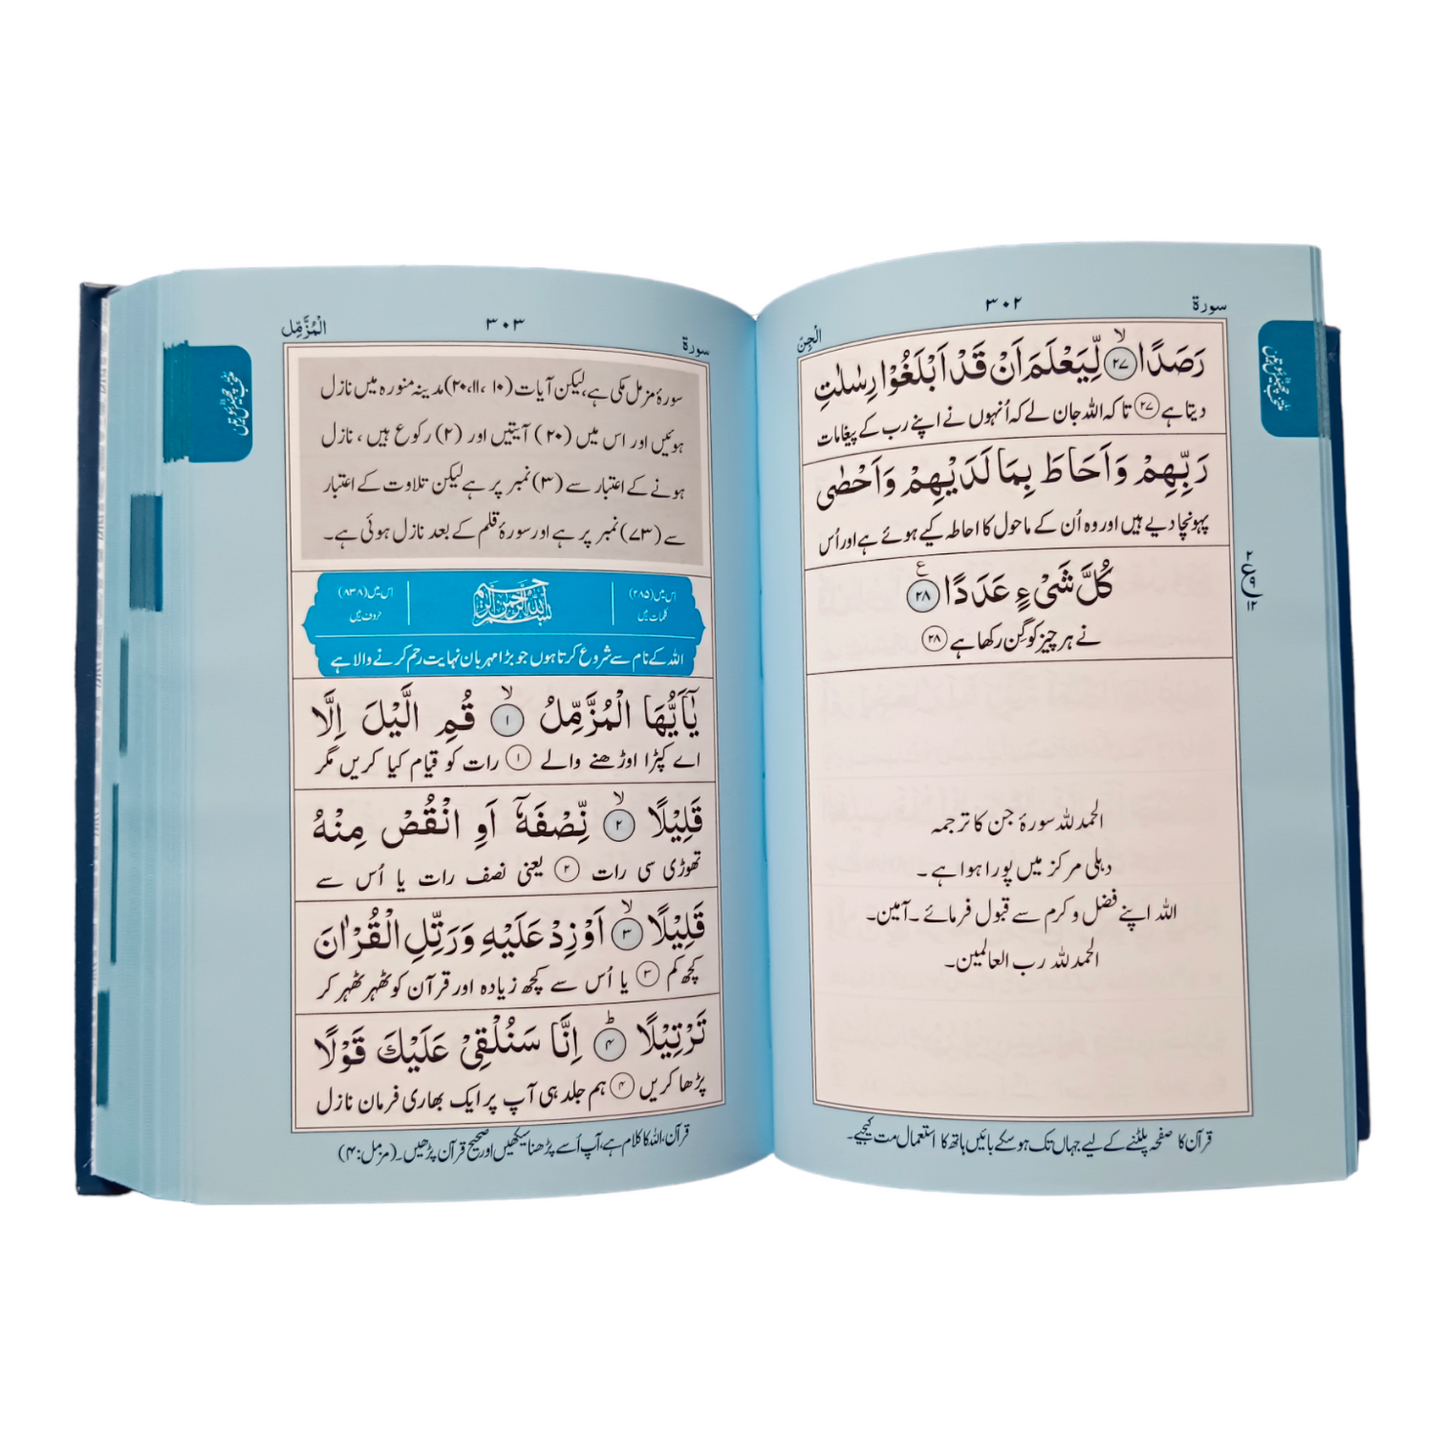 سورة
۳۰۲
الْجِنّ
رَصَدًا ۙ﴿۲۷﴾ لِّيَعْلَمَ اَنْ قَدْ اَبْلَغُوْا رِسٰلٰتِ
دیتا ہے ﴿۲۷﴾ تاکہ اللہ جان لے کہ اُنہوں نے اپنے رب کے پیغامات
رَبِّهِمْ وَاَحَاطَ بِمَا لَدَيْهِمْ وَاَحْصٰى
پہونچا دیے ہیں اور وہ اُن کے ماحول کا احاطہ کیے ہوئے ہے اور اُس
كُلَّ شَىْءٍ عَدَدًا ﴿۲۸﴾ ع
نے ہر چیز کو گِن رکھا ہے ﴿۲۸﴾
۲
ع
۱۲
الحمد للہ سورۂ جن کا ترجمہ
دہلی مرکز میں پورا ہوا ہے ۔
اللہ اپنے فضل و کرم سے قبول فرمائے ۔ آمین۔
الحمد للہ رب العالمین۔
قرآن کا صفحہ پلٹنے کے لیے جہاں تک ہو سکے بائیں ہاتھ کا استعمال مت کیجیے۔
سورة
۳۰۳
الْمُزَّمِّل
سورۂ مزمل مکی ہے، لیکن آیات (۱۰ ،۱۱، ۲۰) مدینہ منورہ میں نازل
ہوئیں اور اس میں (۲۰) آیتیں اور (۲) رکوع ہیں ، نازل
ہونے کے اعتبار سے (۳) نمبر پر ہے لیکن تلاوت کے اعتبار
سے (۷۳) نمبر پر ہے اور سورۂ قلم کے بعد نازل ہوئی ہے۔
اس میں (۲۸۵) کلمات ہیں
بسم الله الرحمن الرحيم
اس میں (۸۳۸) حروف ہیں
اللہ کے نام سے شروع کرتا ہوں جو بڑا مہربان نہایت رحم کرنے والا ہے
يٰۤاَيُّهَا الْمُزَّمِّلُ ۙ﴿۱﴾ قُمِ الَّيْلَ اِلَّا
اے کپڑا اوڑھنے والے ﴿۱﴾ رات کو قیام کیا کریں مگر
قَلِيْلًا ۙ﴿۲﴾ نِّصْفَهٗۤ اَوِ انْقُصْ مِنْهُ
تھوڑی سی رات ﴿۲﴾ یعنی نصف رات یا اُس سے
قَلِيْلًا ۙ﴿۳﴾ اَوْ زِدْ عَلَيْهِ وَرَتِّلِ الْقُرْاٰنَ
کچھ کم ﴿۳﴾ یا اُس سے کچھ زیادہ اور قرآن کو ٹھہر ٹھہر کر
تَرْتِيْلًا ؕ﴿۴﴾ اِنَّا سَنُلْقِىْ عَلَيْكَ قَوْلًا
پڑھا کریں ﴿۴﴾ ہم جلد ہی آپ پر ایک بھاری فرمان نازل
قرآن، اللہ کا کلام ہے، آپ اُسے پڑھنا سیکھیں اور صحیح قرآن پڑھیں۔ (مزمل: ۴)